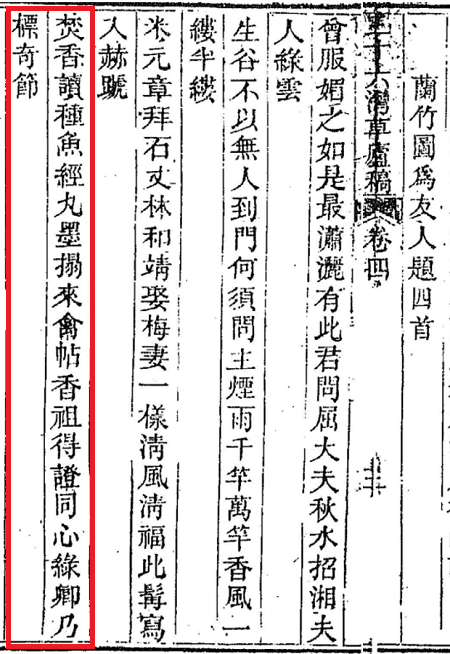 蘭竹圖爲友人題四首
三十六灣草廬稿
卷四
曾服媚之如是最瀟灑有此君問屈大夫秋水招湘夫
人綠雲
生谷不以無人到門何須問主煙雨千竿萬竿香風一
縷半縷
米元章拜石丈林和靖娶梅妻一樣淸風淸福此髯寫
入赫蹏
焚香讀種魚經丸墨搨來禽帖香祖得證同心綠卿乃
標奇節